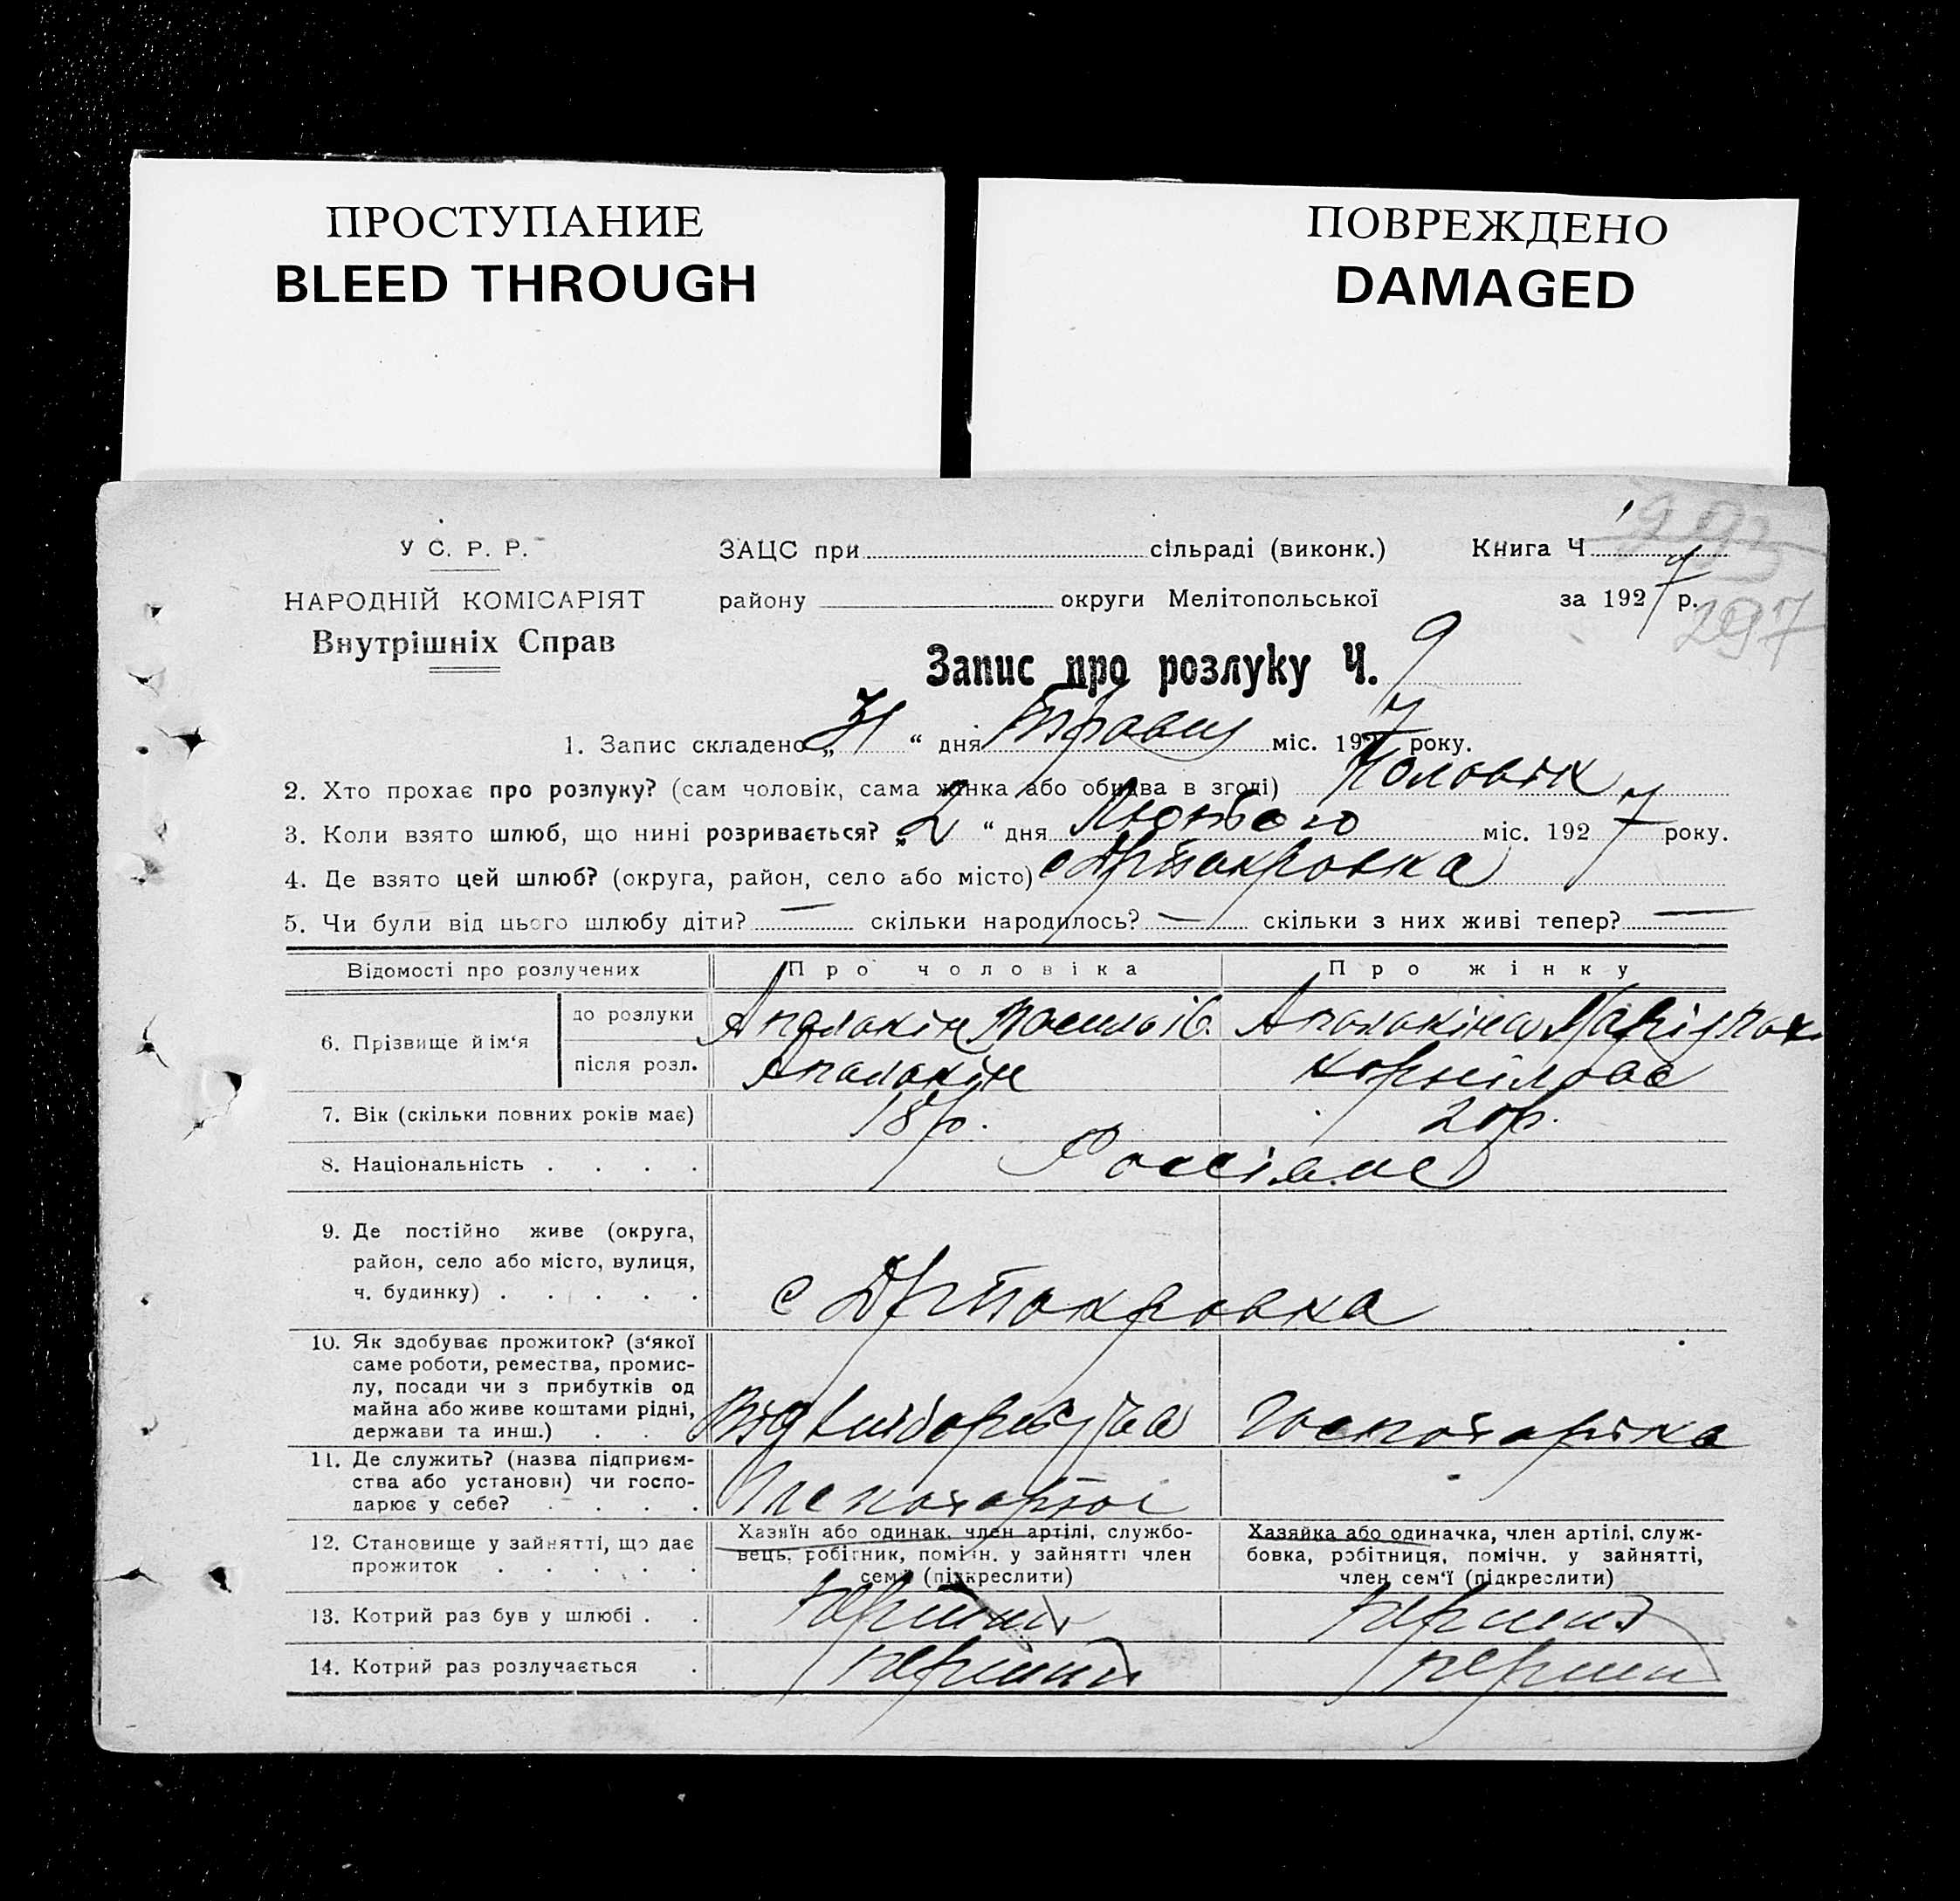 ПРОСТУПАНИЕ
BLEED THROUGH
ПОВРЕЖДЕНО
DAMAGED
У С. Р. Р.
НАРОДНІЙ КОМІСАРІЯТ
Внутрішніх Справ
ЗАЦС при сільраді (виконк.) Книга Ч
293
району округи Мелітопольської за 1927 р.
297
Запис про розлуку Ч. 9
1. Запис складено „31“ дня Травня міс. 1927 року.
2. Хто прохає про розлуку? (сам чоловік, сама жінка або обидва в згоді) Чоловік
3. Коли взято шлюб, що нині розривається? „2“ дня Лютого міс. 1927 року.
4. Де взято цей шлюб? (округа, район, село або місто) с
5. Чи були від цього шлюбу діти? — скільки народилось? — скільки з них живі тепер? —
Відомості про розлучених Про чоловіка Про жінку
6. Прізвище й ім‘я
до розлуки Апалакін Апалакіна Марія
після розл. Апалакін Корнілова
7. Вік (скільки повних років має) 18 р. 20 р.
8. Національність . . . .
9. Де постійно живе (округа,
район, село або місто, вулиця,
ч. будинку) . . . . . с
10. Як здобуває прожиток? (з‘якої
саме роботи, ремества, промис-
лу, посади чи з прибутків од
майна або живе коштами рідні,
держави та инш.) . . . Від
11. Де служить? (назва підприєм-
ства або установи) чи госпо-
дарює у себе? . . . .
12. Становище у зайнятті, що дає
прожиток . . . . .
Хазяїн або одинак, член артілі, службо-
вець, робітник, помічн. у зайнятті член
сем‘ї (підкреслити)
Хазяйка або одиначка, член артілі, служ-
бовка, робітниця, помічн. у зайнятті,
член сем‘ї (підкреслити)
13. Котрий раз був у шлюбі . .
14. Котрий раз розлучається .